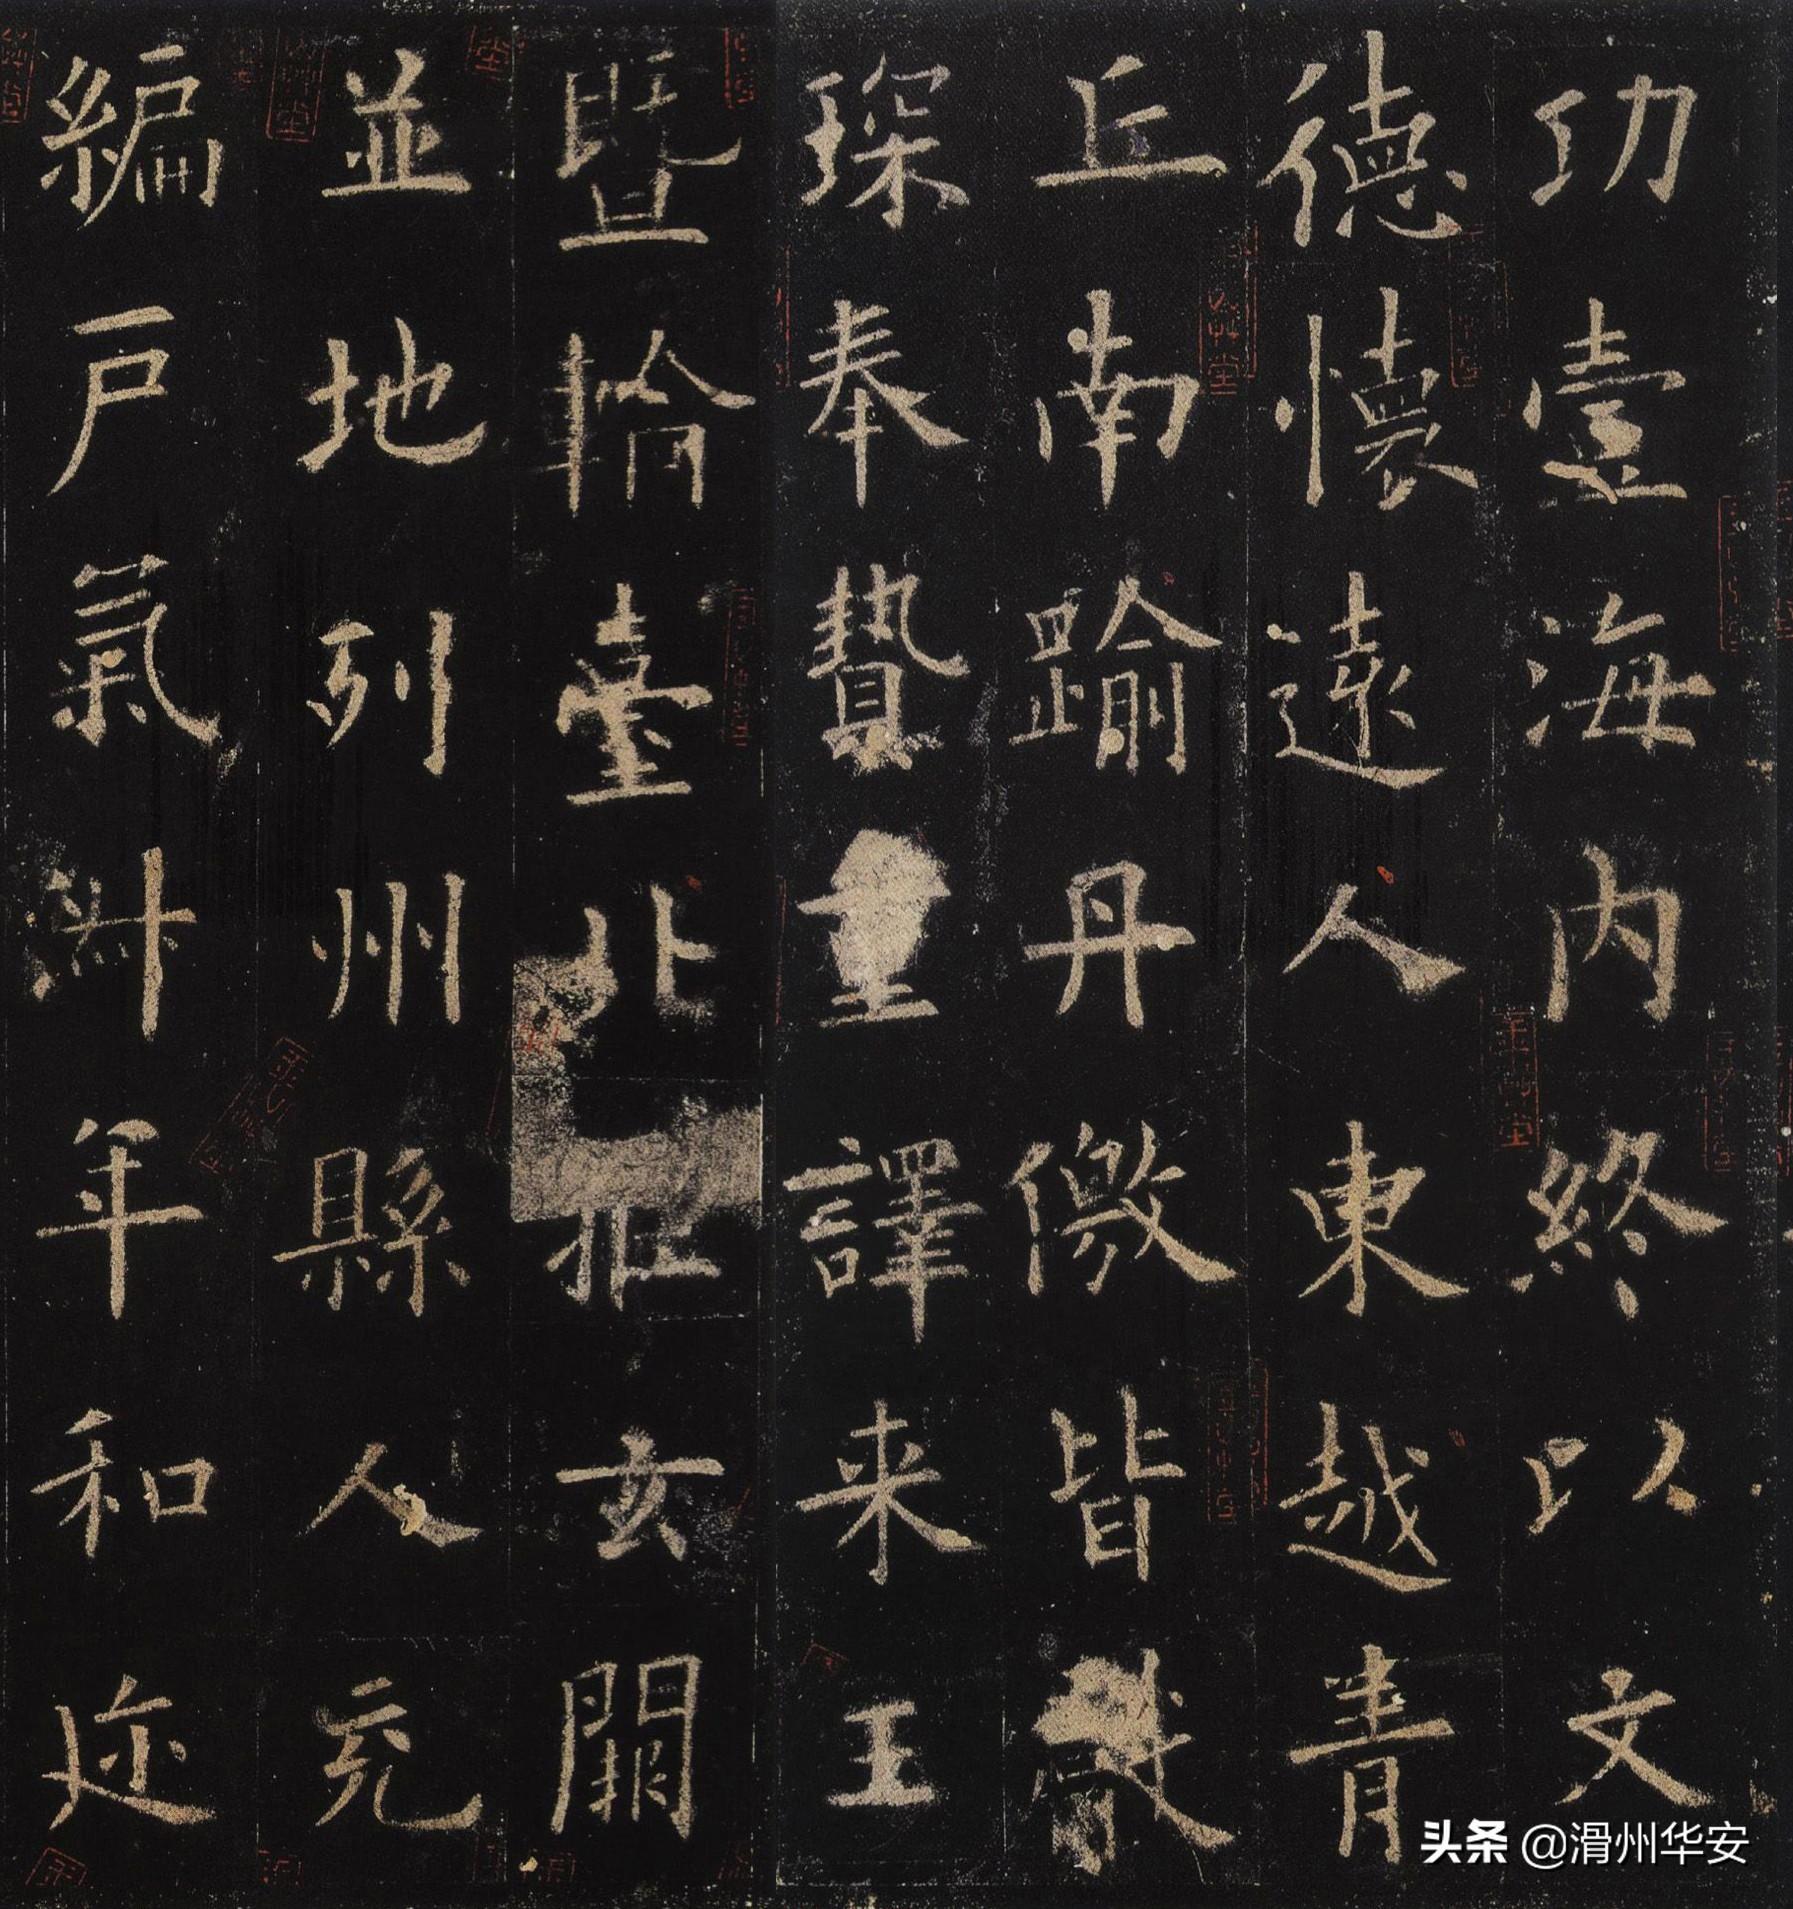 功壹海内終以文
德懷遠人東越青
丘南踰丹儌皆獻
琛奉贄重譯来王
暨輪臺北拒玄闕
並地列州縣人充
編戸氣淑年和迩
头条 @滑州华安